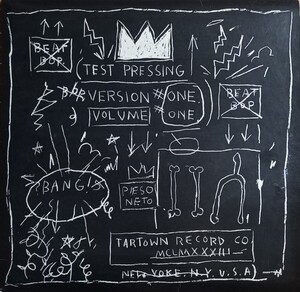 BEAT
BOP
TEST PRESSING
VERSION #ONE
VOLUME ONE
BEAT
BOP
BANG!
PIESO
NETO
TARTOWN RECORD CO.
MCLMXXXIII
NEW YORK. N.Y. U.S.A